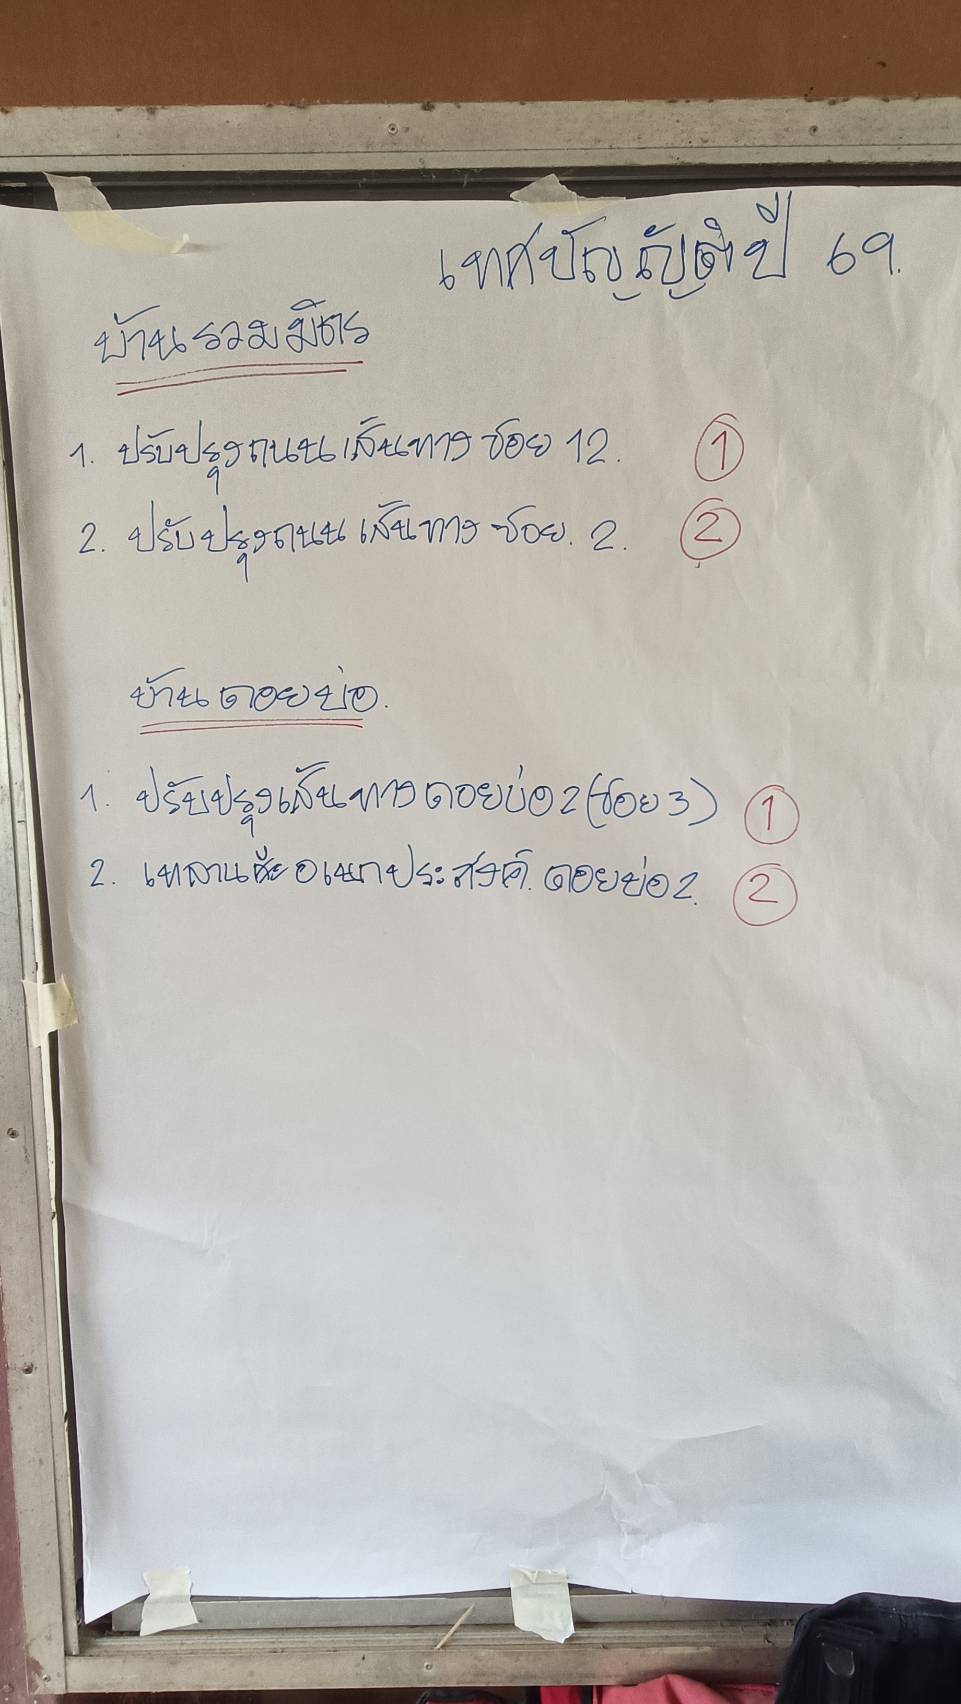 เทศบัญญัติปี 69.
บ้านรวมมิตร
1. ปรับปรุงถนนเส้นทาง ซอย 12. 1
2. ปรับปรุงถนน เส้นทาง ซอย. 2. 2
บ้านดอยบ่อ.
1. ปรับปรุงเส้นทางดอยบ่อ 2 (ซอย 3) 1
2. เทลาน อเนกประสงค์. ดอยบ่อ 2. 2